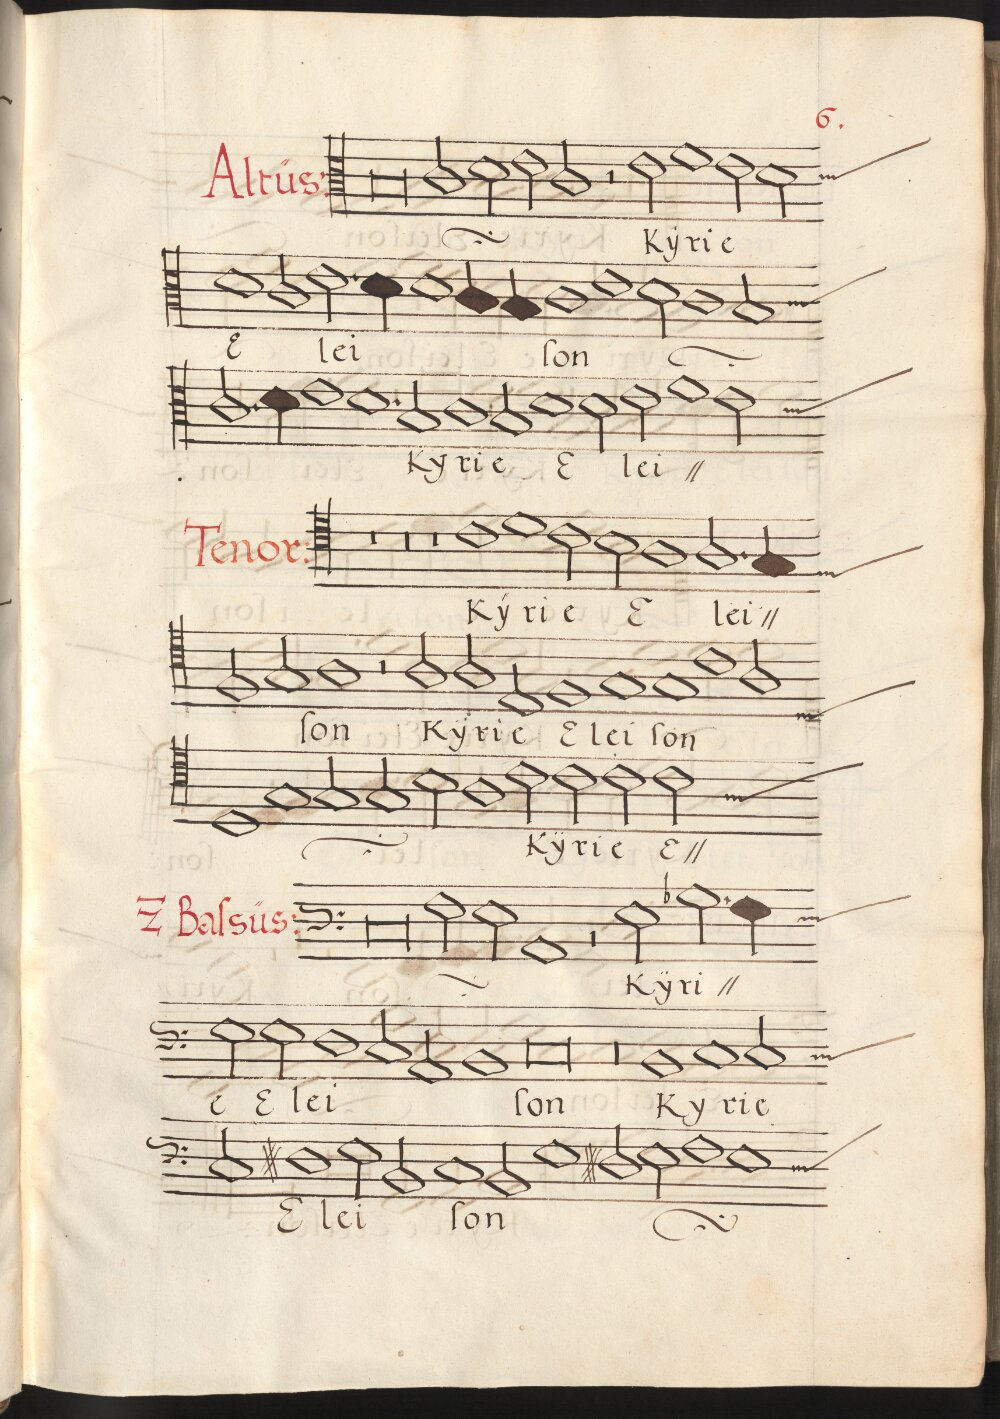 6.
Altüs:
Kÿrie
E lei ſon
Kyrie E lei //
Tenor:
Kÿ rie E lei //
ſon Kÿrie E lei ſon
Kÿrie E //
Z Baſsüs:
Kÿri //
e E lei ſon Ky rie
E lei ſon